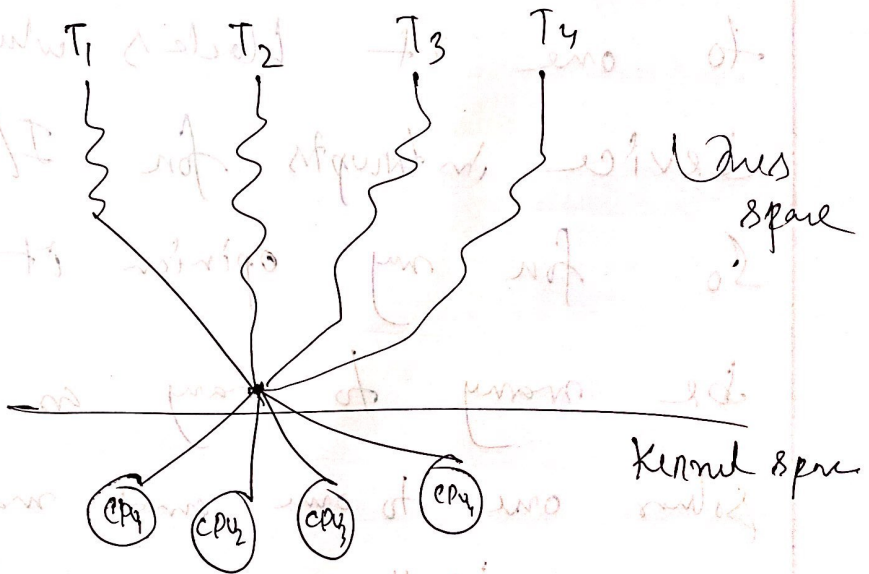 T1 T2 T3 T4
User
space
Kernel space
CPU1 CPU2 CPU3 CPU4